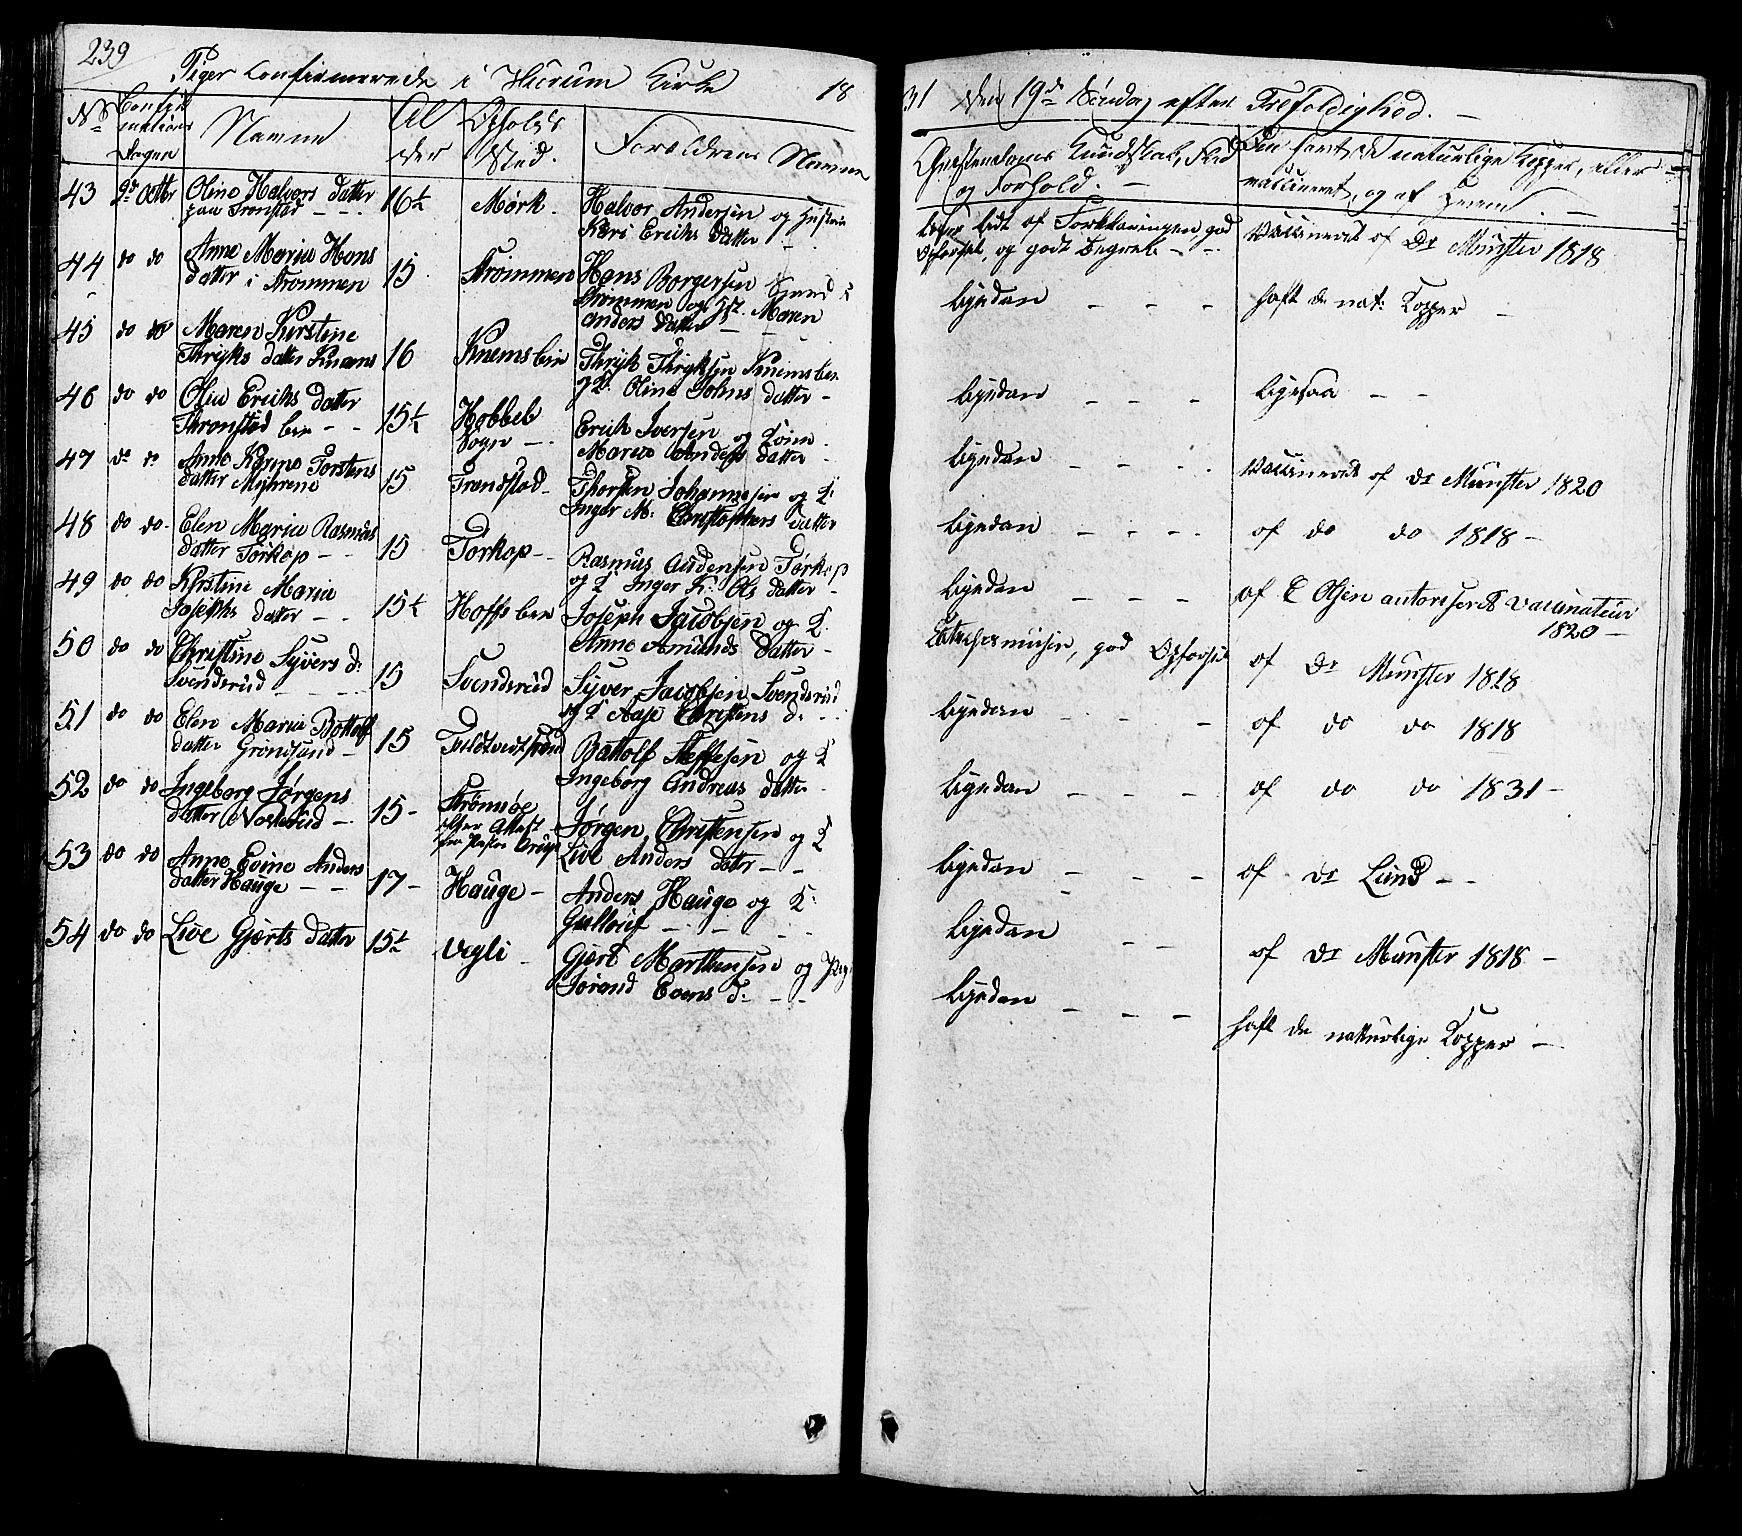 239
Piger confirmerede i Hurum Kirke 18
No Confirmations Dagen Navne Alder Opholds Sted. Forældrenes Navne
43 9de Octbr Oline Halvors datter paa Tronstad - - 16½ Mørk. Halvor Andersen og Hustru
Kari Eriks datter -
44 do do Anne Maria Hans
datter i Strømmen 15 Strømmen Hans Borgersen
Strømmen og Hst. Maren
Anders datter -
45 do do Maren Kirstine
Thryks datter Knems 16 Knemsbin Thryk Thryksen Knemsbin
og K: Oline Johns datter -
46 do do Olea Eriks datter
Thronstad bin - - 15½ Hobbel
Sogn - Erich Iversen og Kone
Maria Anders datter -
47 do do Anne Karine Torstens
datter Myhrene 15 Trandstad - Thorsten Johannesen og K:
Inger M: Christophers datter
48 do do - Elen Maria Rasmus
datter Torkop - - 15 Torkop - Rasmus Audensen Torkop
og K Inger K: Ols datter -
49 do do Kirstine Maria
Josephs datter - - 15½ Hoffs bin Joseph Jacobsen og K.
Anne Amunds datter -
50 do do Christine Syvers d:
Svendsrud 15 Svendsrud Syver Jacobsen Svendsrud
og K Aase Christens d: -
51 do do Elen Maria Bottolf
datter Grøndsund - 15 Bottolf Steffesen og K
Ingeborg Andreas datter -
52 do do Ingeborg Jørgens
datter Nordsrud - 15 - Strømsøe
efter Attest
fra Pastor Jørgen Christensen og K
Live Anders datter - -
53 do do Anne Evine Anders
datter Hauge - - 17 - Hauge - Anders Hauge og K:
54 do do Live Gjerts datter 15½ Vegli - Gjert Marthinsen og Pige
Jørand Evens d: - -
31 den 19de Søndag efter Trefoldighed. -
Christendoms Kundskab, Flid
og Forhold. - Om havt de naturlige Kopper, eller
vaccineret, og af hvem. -
lidt af Forklaringen god
Opførsel, og godt Begreb - - Vaccineret af Dr Munster 1818
ligedan - - - haft de nat: Kopper -
ligedan - - - ligesaa - -
ligedan - - - Vaccineret af Dr Munster 1820
ligedan - - - - af do do 1818 -
ligedan - - - af E Olsen autoriseret Vaccinateur
1820 -
god Opførsel af Dr Munster 1818
ligedan - - - af do do 1818
ligedan - - - af do do 1831 -
ligedan - - - af Dr Lund - -
ligedan - - af Dr Munster 1818 -
ligedan - - - haft de naturlige Kopper -